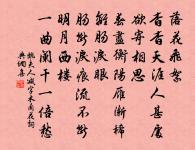 落花飛絮
杳杳天涯人甚處
欲寄相思
春盡衡陽雁漸稀
離腸淚眼
腸斷淚痕流不斷
明月西樓
一曲闌干一倍愁
魏夫人減字木蘭花詞